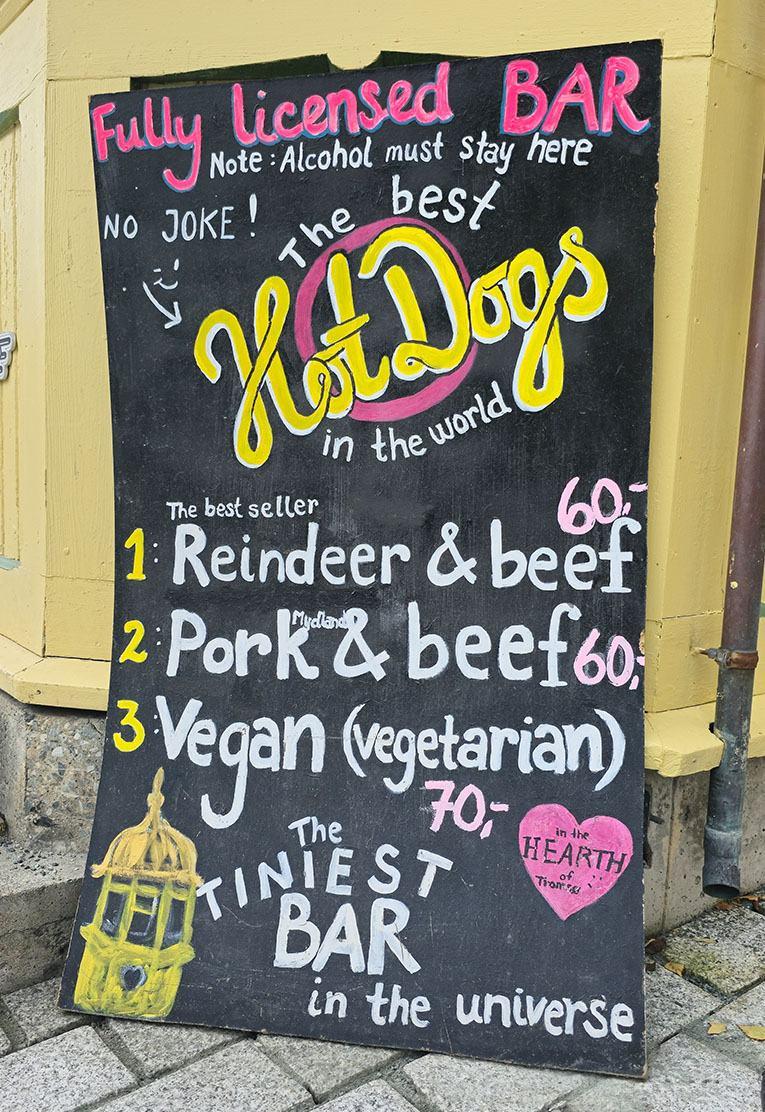 Fully licensed BAR
Note: Alcohol must stay here
NO JOKE!
The best
Hot Dogs
in the world
The best seller
60,-
1: Reindeer & beef
Mydland
2: Pork & beef 60,-
3: Vegan (vegetarian)
70,-
The
TINIEST
BAR
in the universe
in the
HEARTH
of
Tromsø